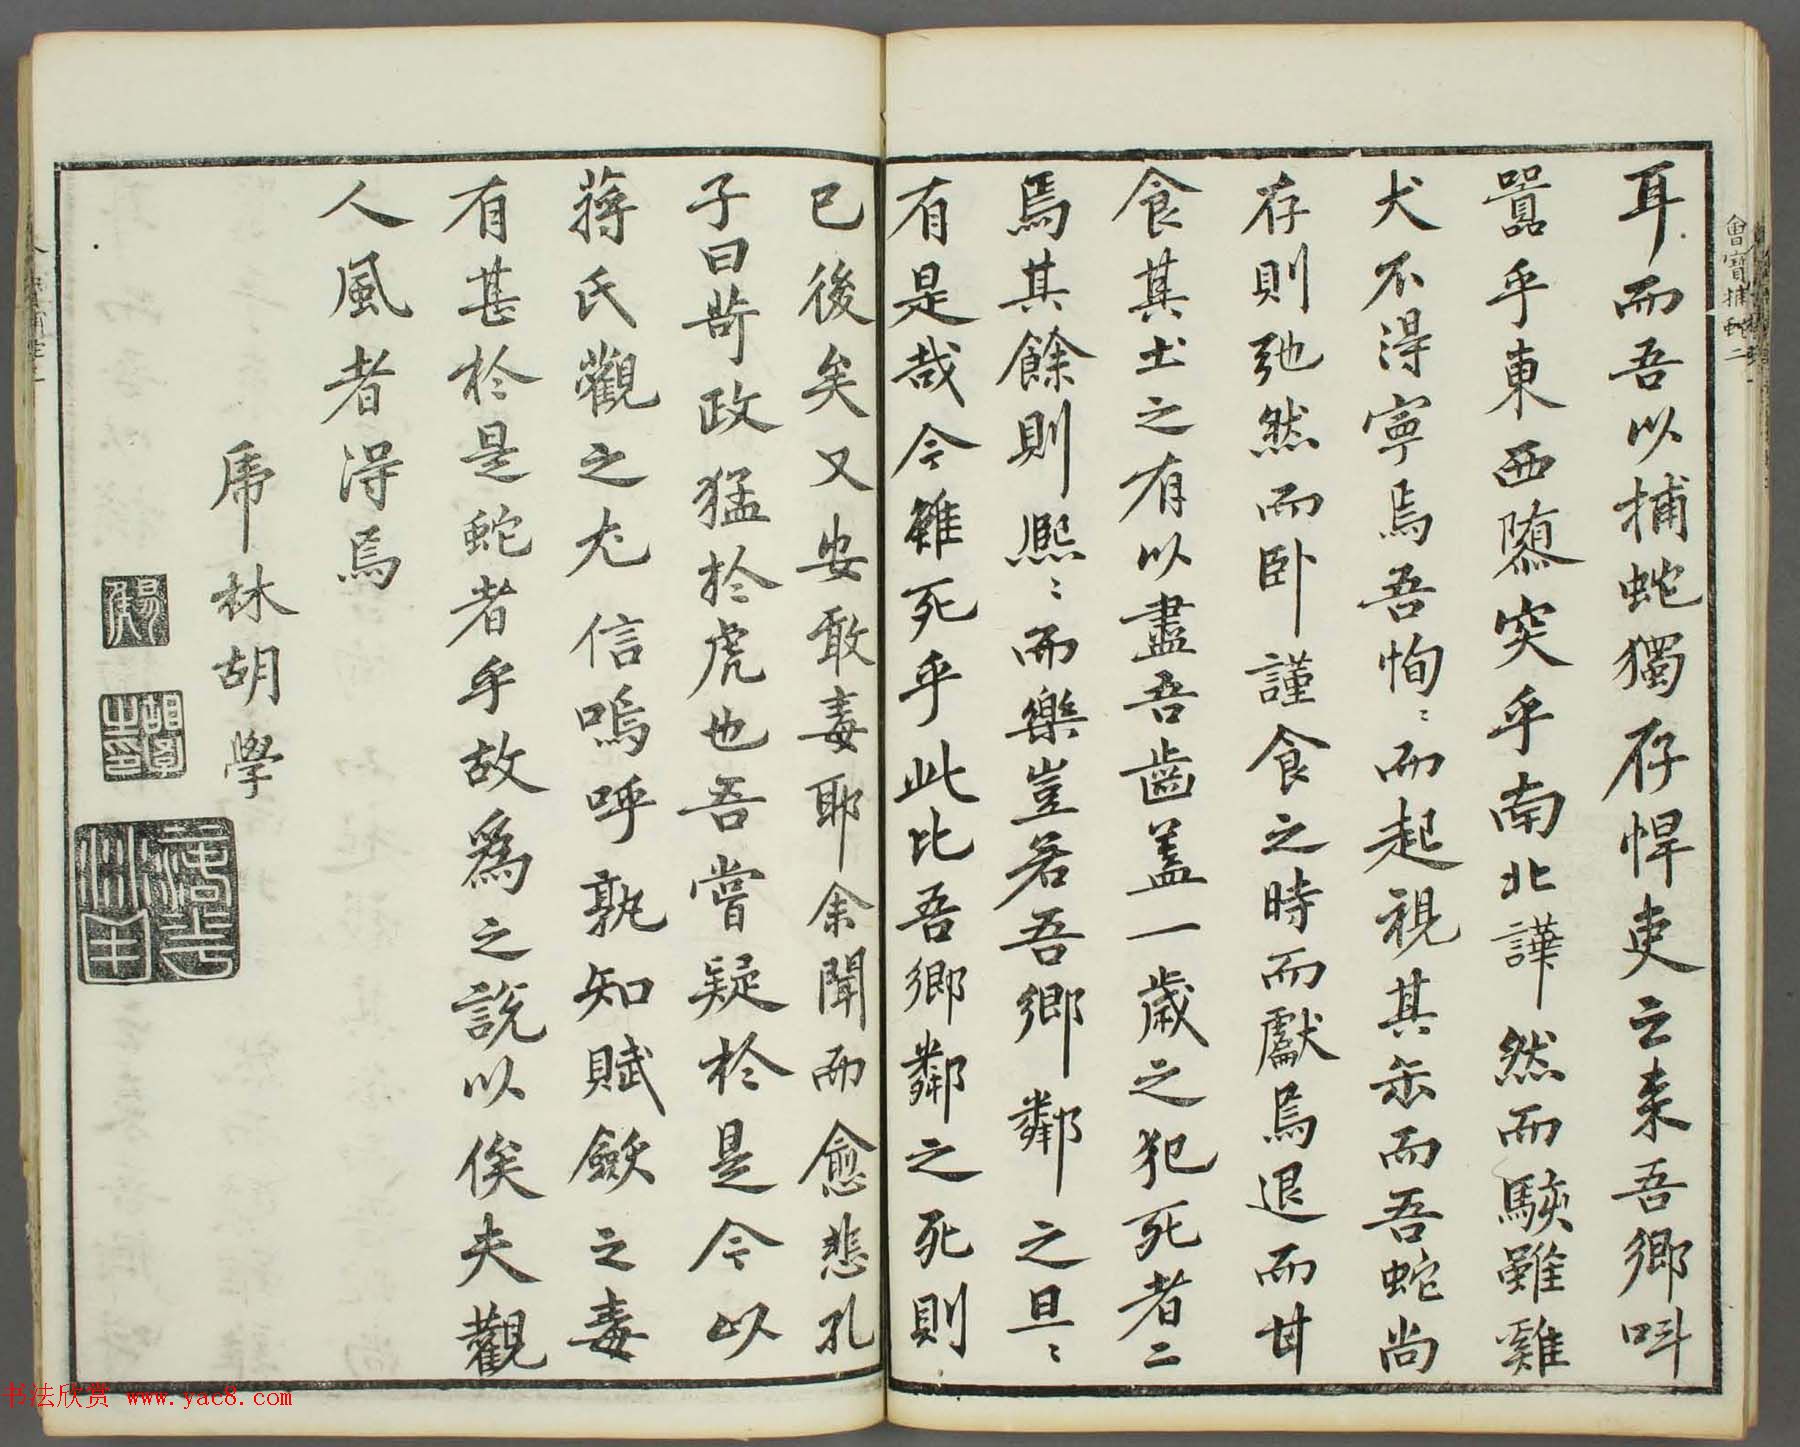 會寶捕蛇二
耳而吾以捕蛇獨存悍吏之来吾鄉叫
囂乎東西隳突乎南北譁然而駭雖雞
犬不得寧焉吾恂〻而起視其缶而吾蛇尚
存則弛然而卧謹食之時而獻焉退而甘
食其土之有以盡吾齒盖一歲之犯死者二
焉其餘則熈〻而樂豈若吾鄉鄰之旦〻
有是哉今雖死乎此比吾鄉鄰之死則
已後矣又安敢毒耶余聞而愈悲孔
子曰苛政猛於虎也吾嘗疑於是今以
蔣氏觀之尤信嗚呼孰知賦斂之毒
有甚於是蛇者乎故爲之說以俟夫觀
人風者得焉
虎林胡學
书法欣赏 www.yac8.com